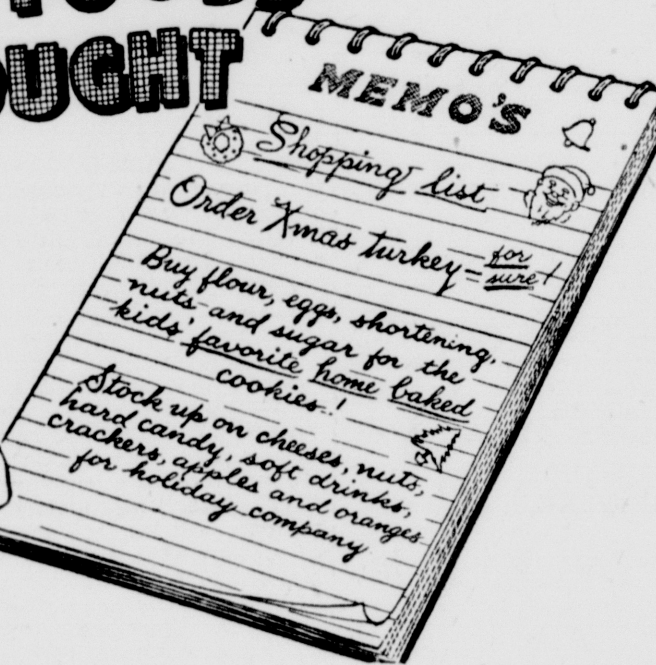 OUGHT
MEMO'S
Shopping list
Order Xmas turkey - for sure!
Buy flour, eggs, shortening,
nuts and sugar for the
kids' favorite home baked
cookies!
Stock up on cheeses, nuts,
hard candy, soft drinks,
crackers, apples and oranges
for holiday company